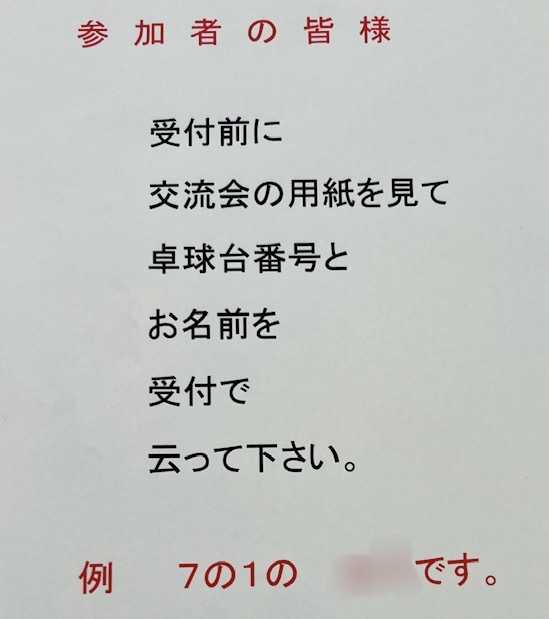 参加者の皆様
受付前に
交流会の用紙を見て
卓球台番号と
お名前を
受付で
云って下さい。
例　７の１の　です。